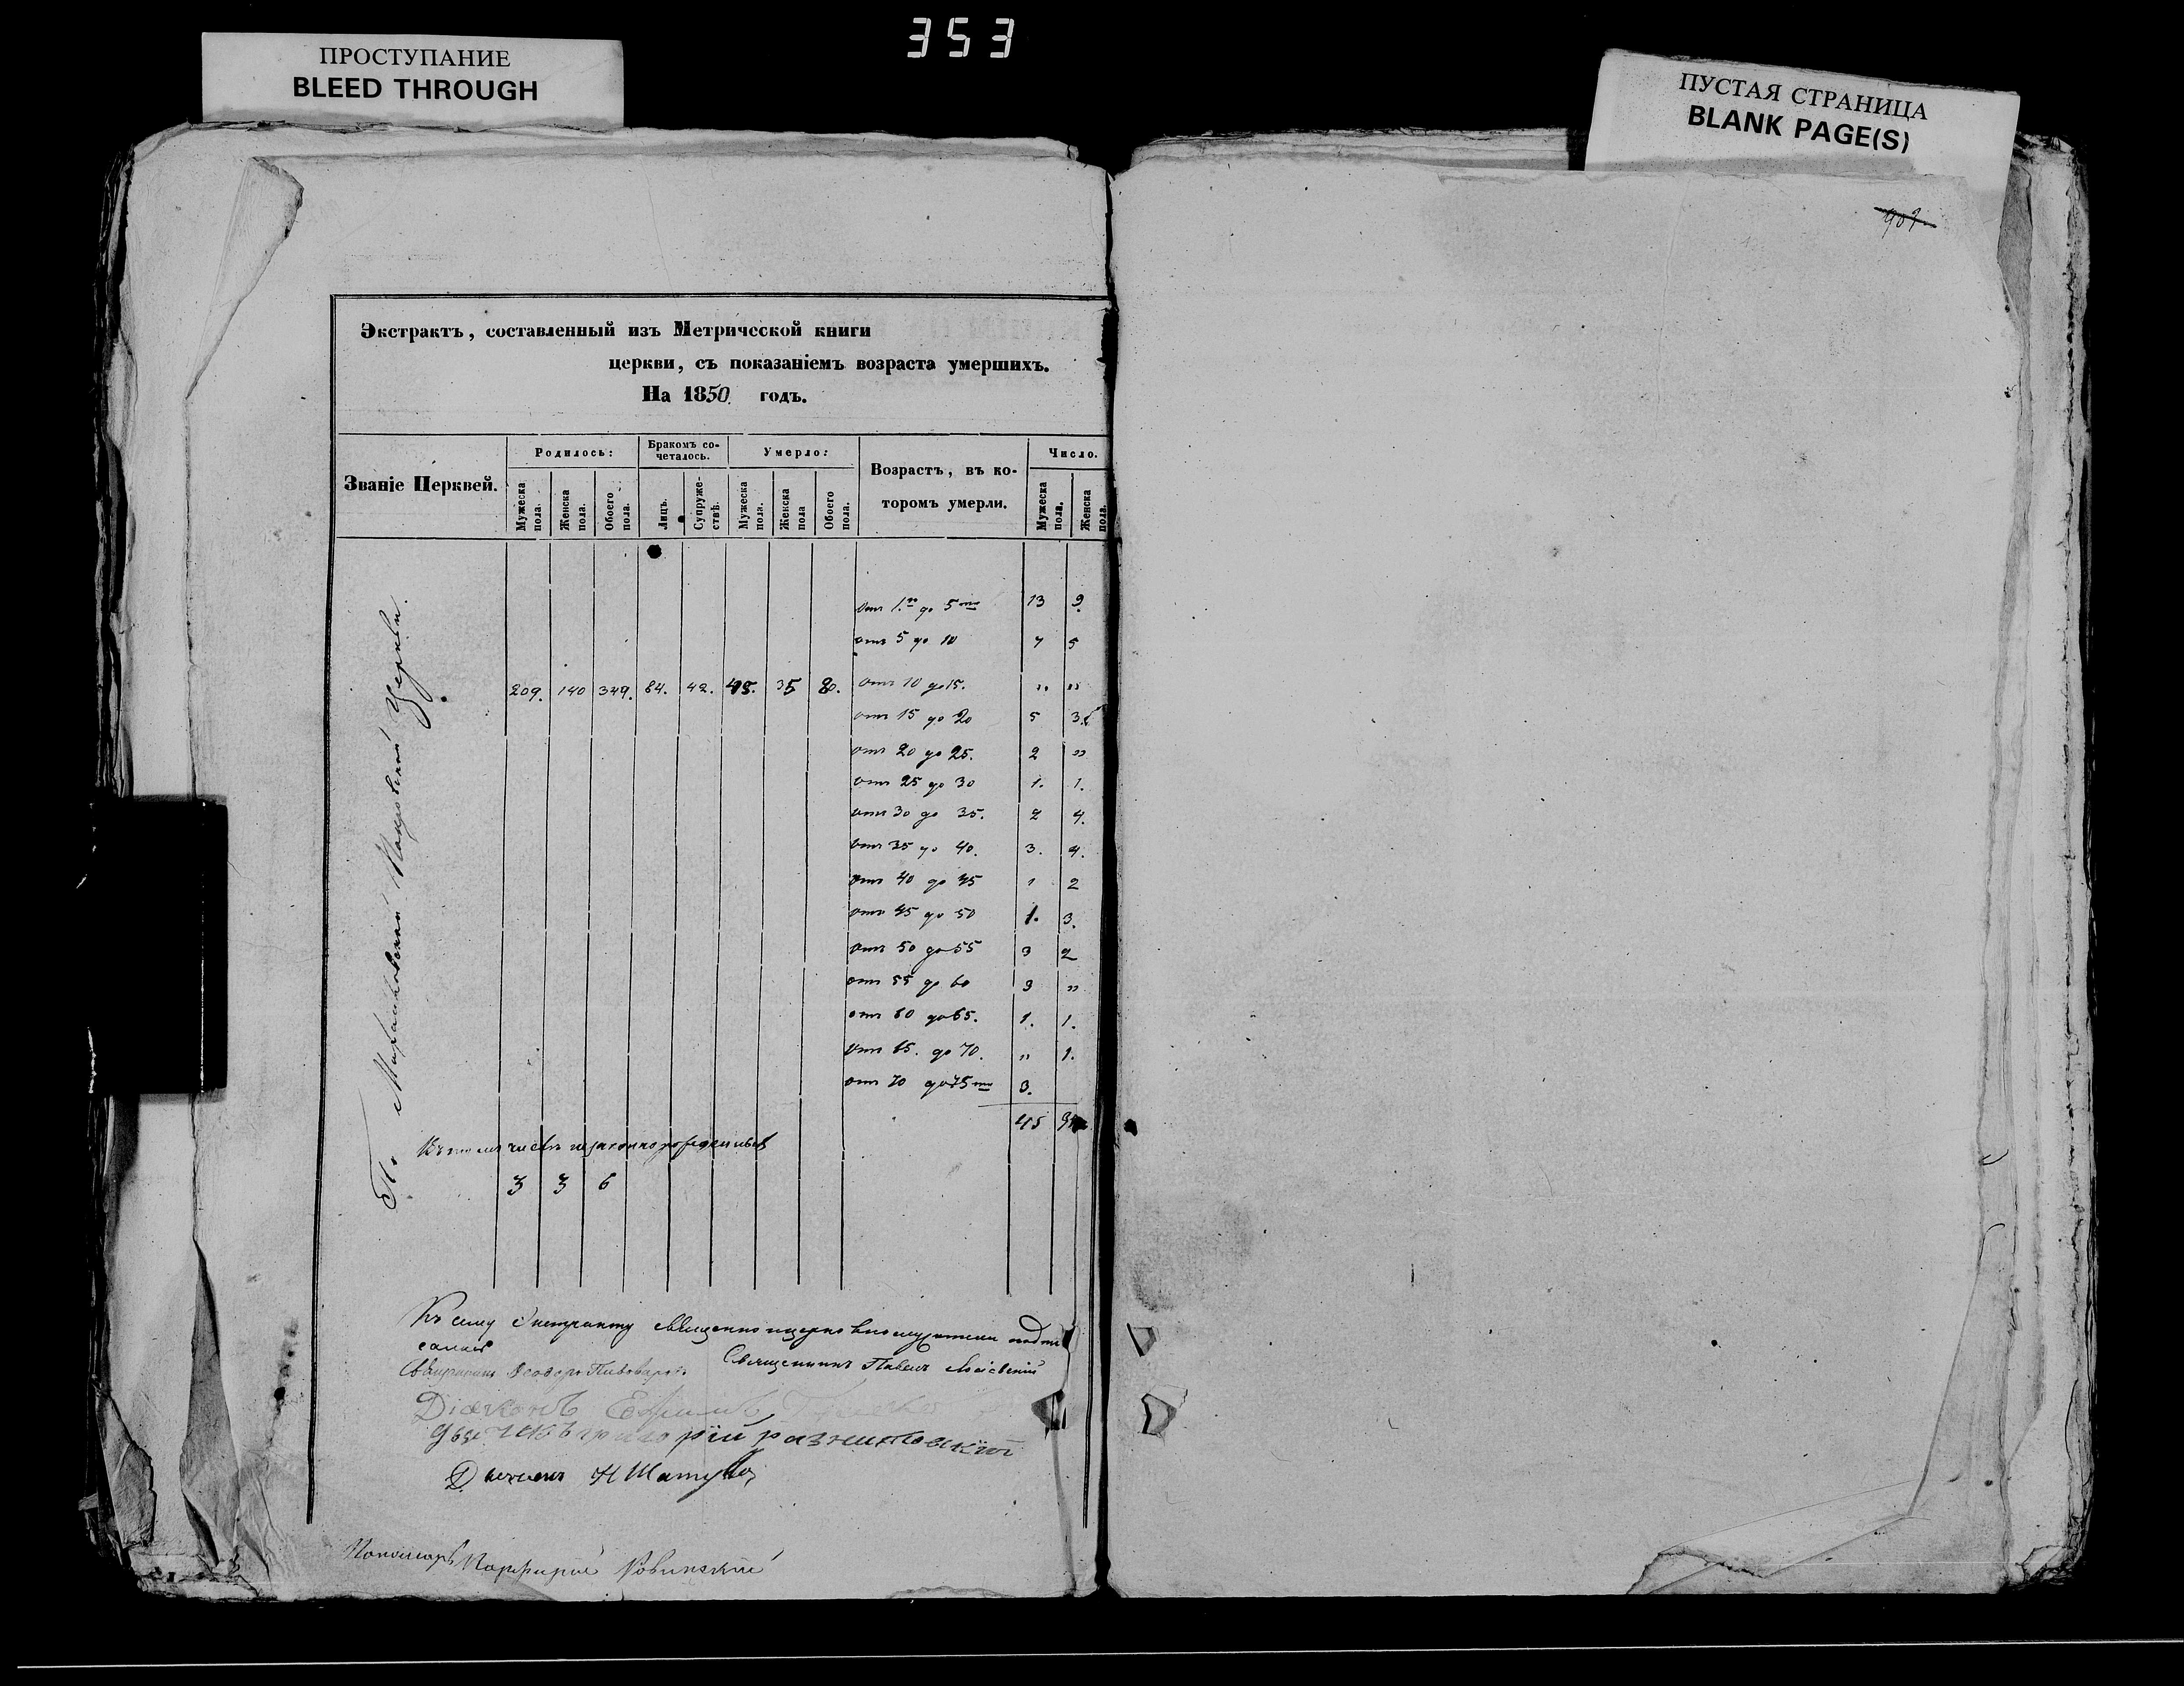 353
ПРОСТУПАНИЕ
BLEED THROUGH
ПУСТАЯ СТРАНИЦА
BLANK PAGE(S)
Экстрактъ, составленный изъ Метрической книги
церкви, съ показаніемъ возраста умершихъ.
На 1850. годъ.
Званіе Церквей.
Родилось:
Бракомъ со-
четалось.
Умерло:
Возрастъ, въ ко-
торомъ умерли.
Число.
Мужеска пола.
Женска пола.
Обоего пола.
Лицъ.
Супруже-
ствъ.
Мужеска пола.
Женска пола
Обоего пола.
Мужеска пола.
Женска пола.
По Покровской Церкви.
отъ 1.го до 5ти 13 9.
отъ 5 до 10 7 5
209. 140 349. 84. 42. 45. 35 80. отъ 10 до 15. " "
отъ 15 до 20 5 3.
отъ 20 до 25. 2 "
отъ 25 до 30 1. 1.
отъ 30 до 35. 2 4.
отъ 35 до 40. 3. 4.
отъ 40 до 45 1 2
отъ 45 до 50 1. 3.
отъ 50 до 55 3 2
отъ 55 до 60 3 "
отъ 60 до 65. 1. 1.
отъ 65. до 70. " 1.
отъ 70 до 75ти 3.
45
Въ томъ числѣ незаконнорожденныхъ
3 3 6
Къ сему Экстракту священно и церковнослужители подпи
сались
Священникъ Феодоръ Пивоваровъ.
Священникъ Павелъ
Діаконъ Ефимъ
григорій
Дьячекъ Н
Пономарь Порфирій Ровинскій